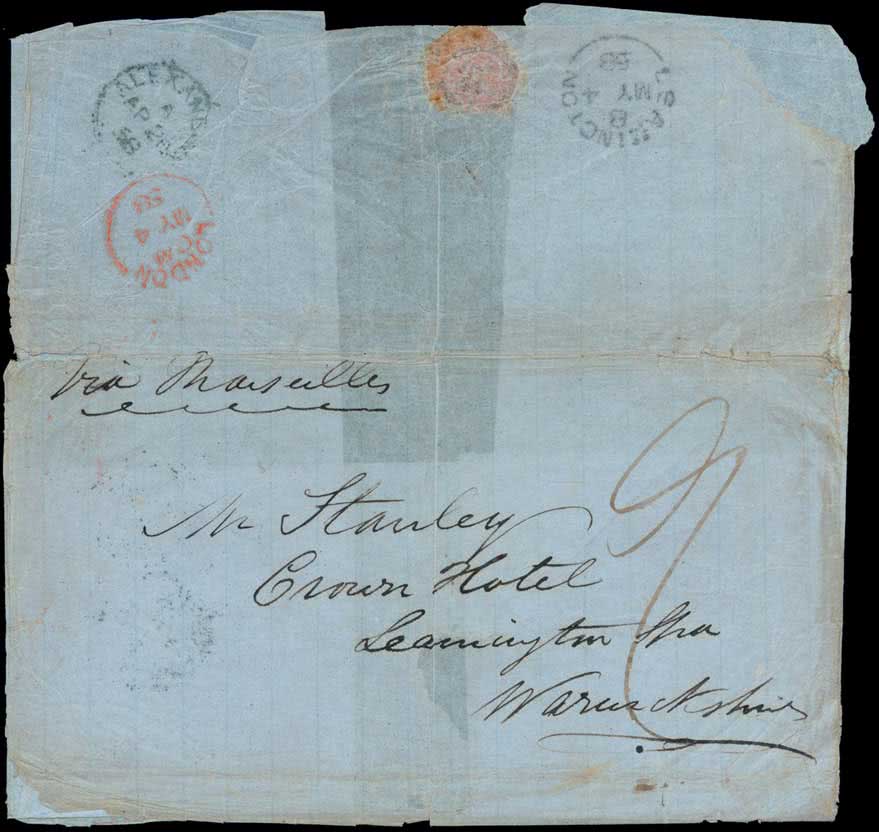 ALEXAND
A
AP 2
LONDON
MY 4
58
LEAMINGTON
B
MY 4
58
Via Marseilles
9
Mr Stanley
Crown Hotel
Leamington Spa
Warwickshire